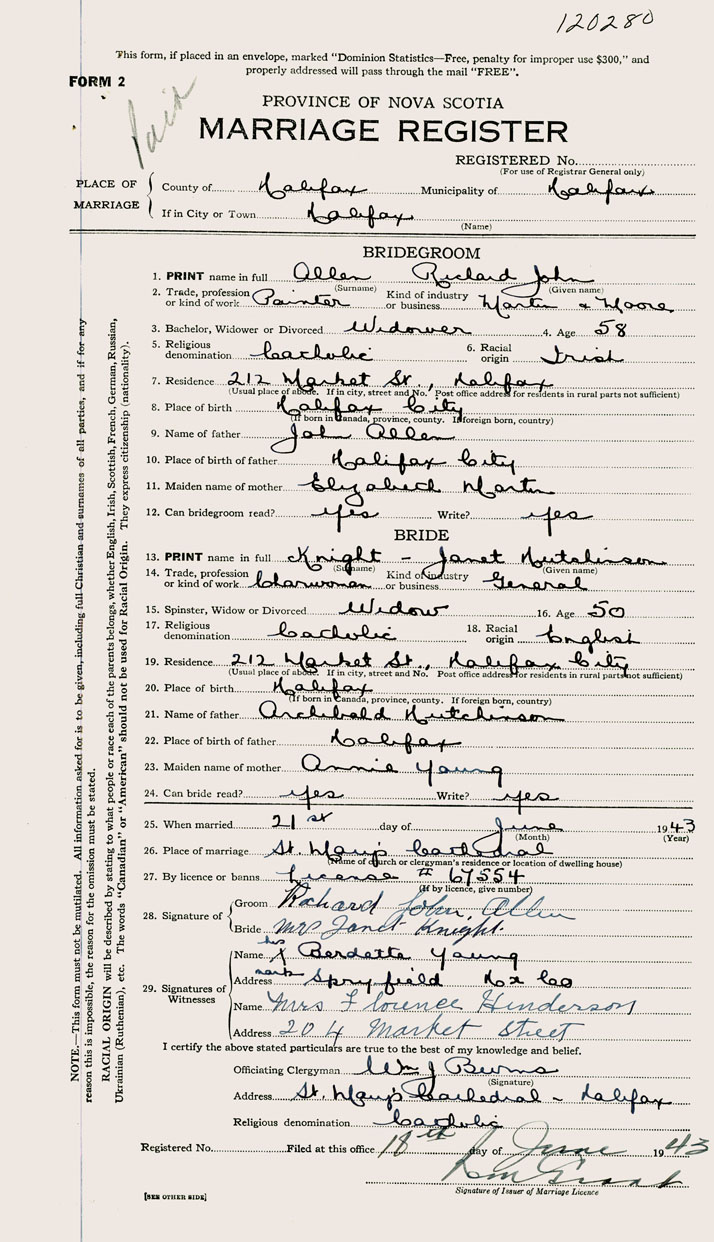 120280
This form, if placed in an envelope, marked "Dominion Statistics—Free, penalty for improper use $300," and
properly addressed will pass through the mail "FREE".
FORM 2
Paid
PROVINCE OF NOVA SCOTIA
MARRIAGE REGISTER
REGISTERED No.
(For use of Registrar General only)
PLACE OF MARRIAGE
County of Halifax Municipality of Halifax
If in City or Town Halifax
(Name)
BRIDEGROOM
1. PRINT name in full Allen Richard John
(Surname) (Given name)
2. Trade, profession or kind of work Painter Kind of industry or business Martin & Moore
3. Bachelor, Widower or Divorced Widower 4. Age 58
5. Religious denomination Catholic 6. Racial origin Irish
7. Residence 212 Market St., Halifax
(Usual place of abode. If in city, street and No. Post office address for residents in rural parts not sufficient)
8. Place of birth Halifax City
(If born in Canada, province, county. If foreign born, country)
9. Name of father John Allen
10. Place of birth of father Halifax City
11. Maiden name of mother Elizabeth Martin
12. Can bridegroom read? yes Write? yes
BRIDE
13. PRINT name in full Knight - Janet Hutchinson
(Surname) (Given name)
14. Trade, profession or kind of work Charwoman Kind of industry or business General
15. Spinster, Widow or Divorced Widow 16. Age 50
17. Religious denomination Catholic 18. Racial origin English
19. Residence 212 Market St., Halifax City
(Usual place of abode. If in city, street and No. Post office address for residents in rural parts not sufficient)
20. Place of birth Halifax
(If born in Canada, province, county. If foreign born, country)
21. Name of father Archibald Hutchinson
22. Place of birth of father Halifax
23. Maiden name of mother Annie Young
24. Can bride read? yes Write? yes
25. When married 21st day of June 1943
(Month) (Year)
26. Place of marriage St. Mary's Cathedral
(Name of church or clergyman's residence or location of dwelling house)
27. By licence or banns License # 67554
(If by licence, give number)
28. Signature of
Groom Richard John Allen
Bride Mrs Janet Knight
29. Signatures of Witnesses
Name his X Berdette Young
Address mark Spryfield Hx Co
Name Mrs Florence Henderson
Address 204 Market Street
I certify the above stated particulars are true to the best of my knowledge and belief.
Officiating Clergyman Wm J Burns
(Signature)
Address St. Mary's Cathedral - Halifax
Religious denomination Catholic
Registered No. Filed at this office 18th day of June 1943
Signature of Issuer of Marriage Licence
[SEE OTHER SIDE]
NOTE.—This form must not be mutilated. All information asked for is to be given, including full Christian and surnames of all parties, and if for any
reason this is impossible, the reason for the omission must be stated.
RACIAL ORIGIN will be described by stating to what people or race each of the parents belongs, whether English, Irish, Scottish, French, German, Russian,
Ukrainian (Ruthenian), etc. The words "Canadian" or "American" should not be used for Racial Origin. They express citizenship (nationality).